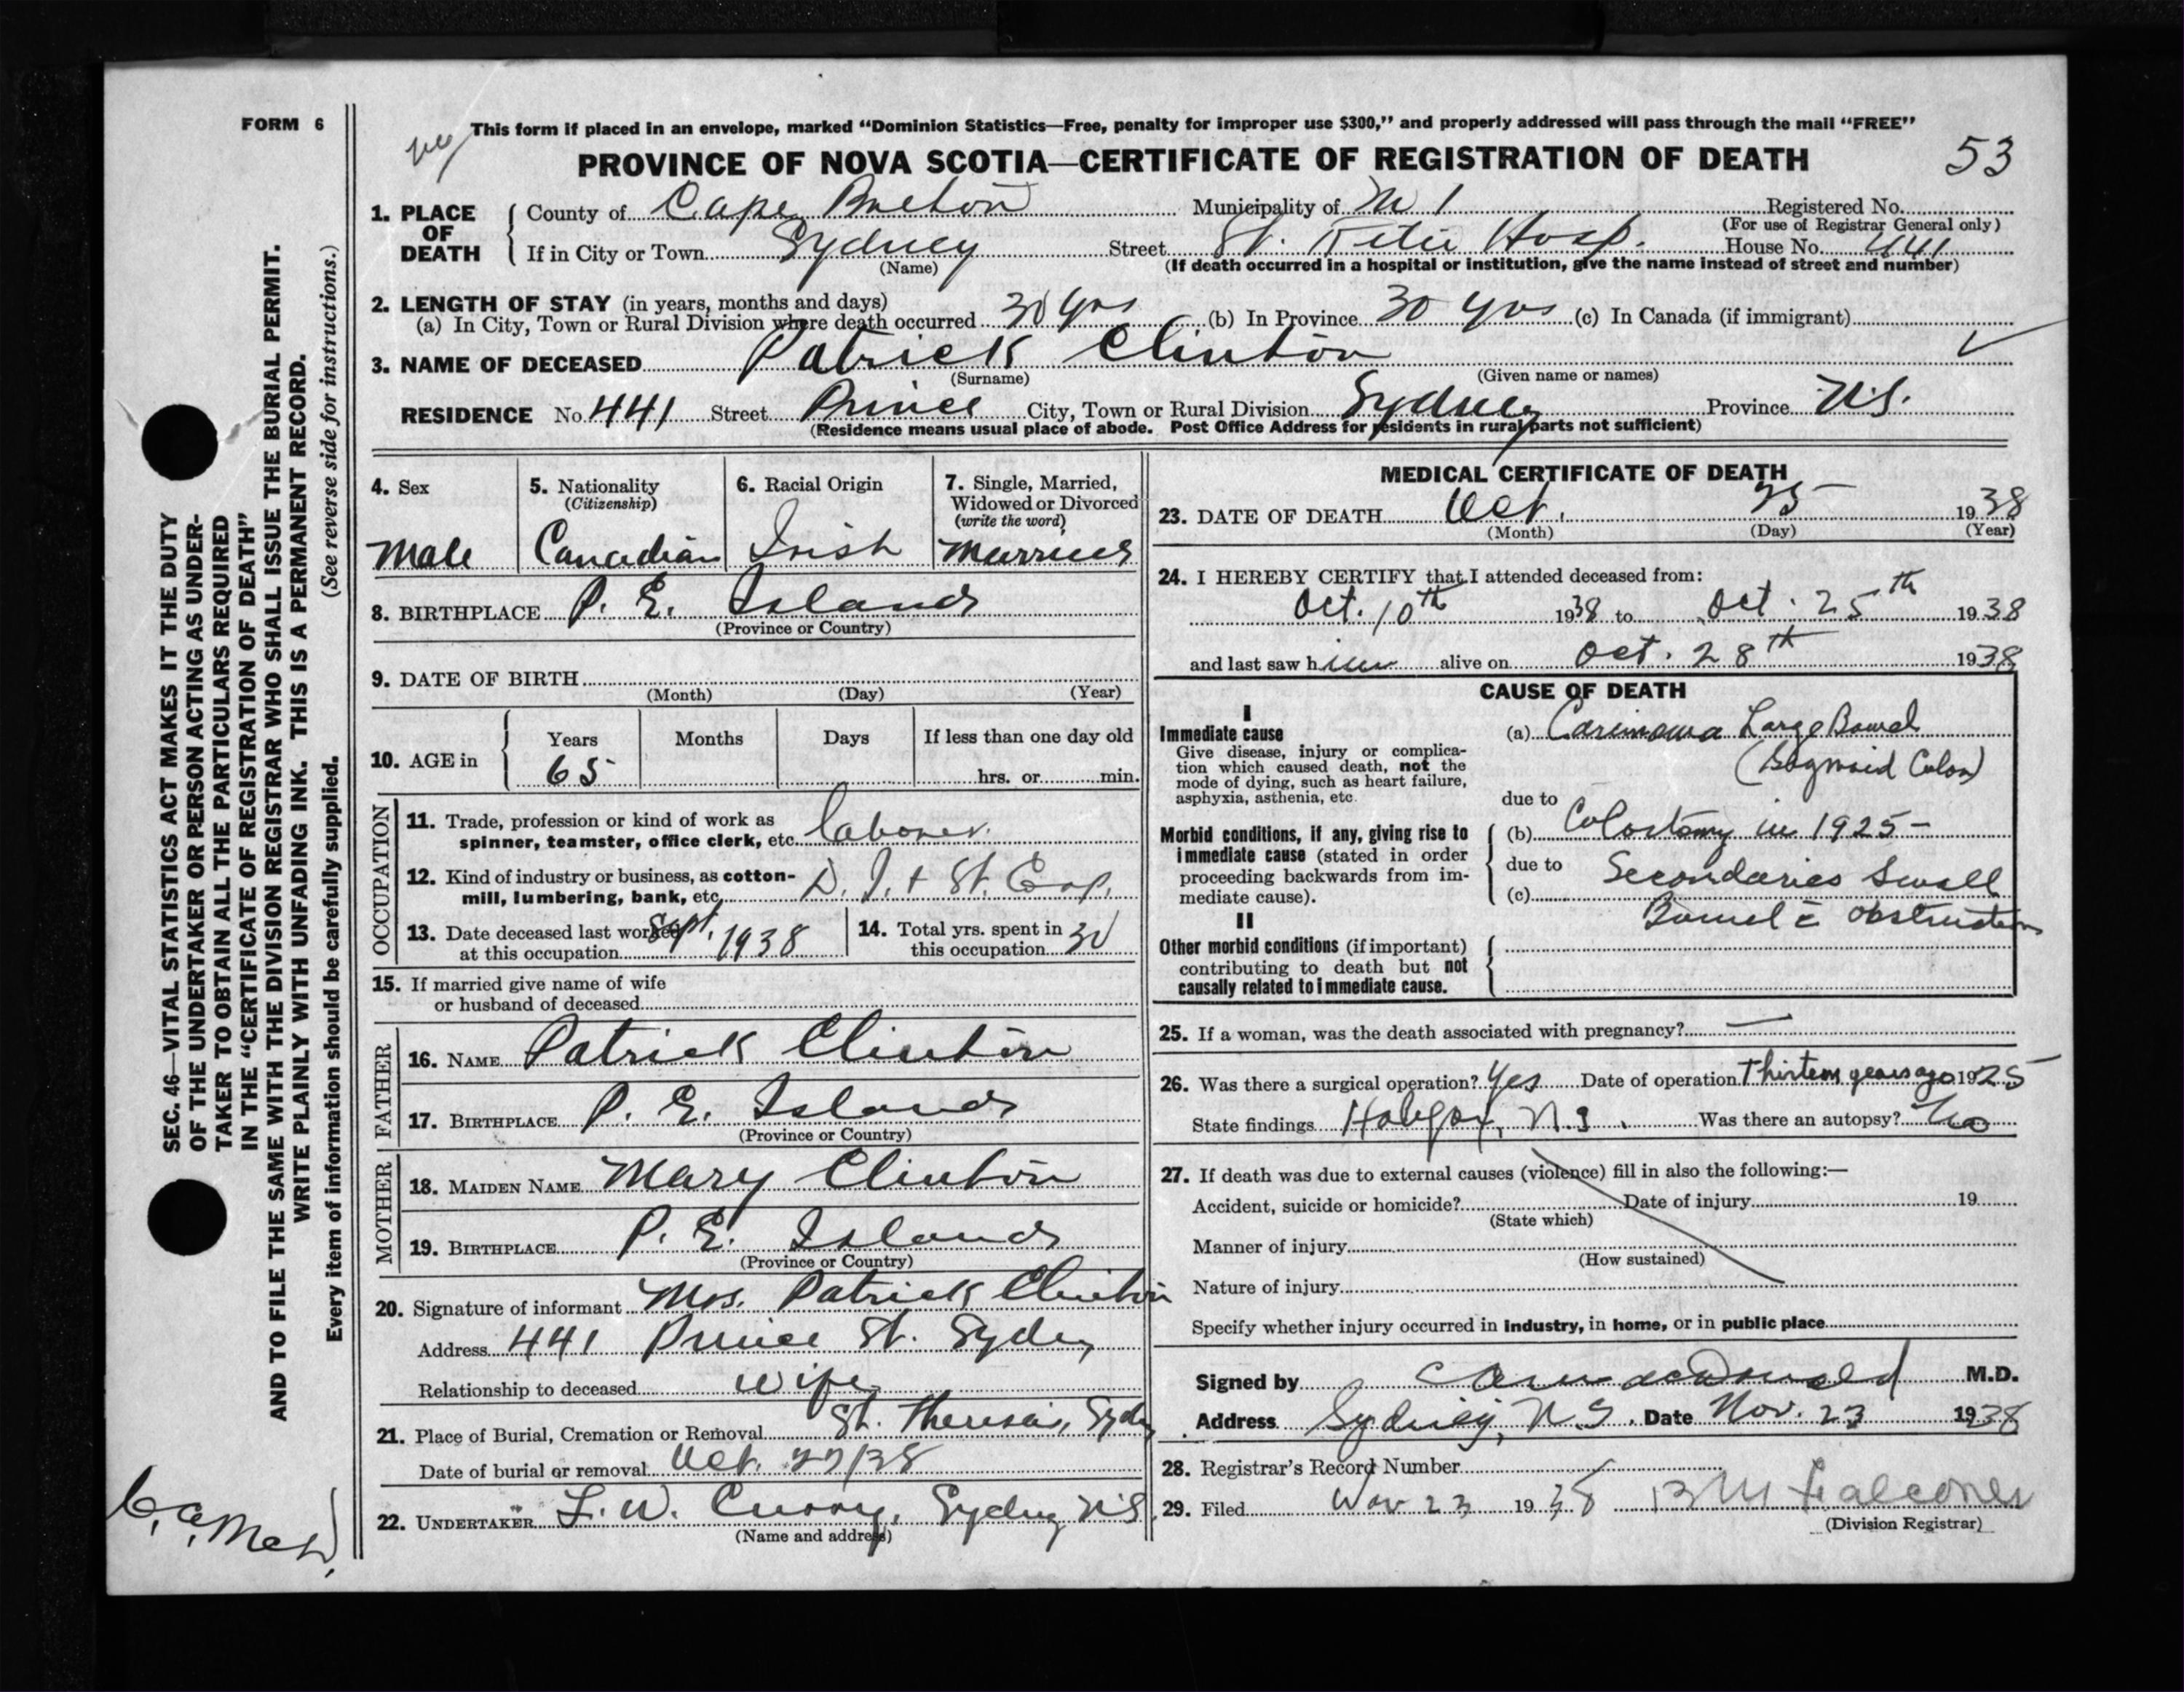 FORM 6
This form if placed in an envelope, marked “Dominion Statistics—Free, penalty for improper use $300,” and properly addressed will pass through the mail “FREE”
PROVINCE OF NOVA SCOTIA—CERTIFICATE OF REGISTRATION OF DEATH 53
1. PLACE OF DEATH
County of Cape Breton Municipality of Registered No.
(For use of Registrar General only)
If in City or Town Sydney Street St. Rita Hosp. House No. 441
(Name) (If death occurred in a hospital or institution, give the name instead of street and number)
2. LENGTH OF STAY (in years, months and days)
(a) In City, Town or Rural Division where death occurred 30 yrs (b) In Province 30 yrs (c) In Canada (if immigrant)
3. NAME OF DECEASED Patrick Clinton
(Surname) (Given name or names)
RESIDENCE No. 441 Street Prince City, Town or Rural Division Sydney Province N.S.
(Residence means usual place of abode. Post Office Address for residents in rural parts not sufficient)
4. Sex
Male
5. Nationality
(Citizenship)
Canadian
6. Racial Origin
Irish
7. Single, Married, Widowed or Divorced
(write the word)
Married
8. BIRTHPLACE P. E. Island
(Province or Country)
9. DATE OF BIRTH
(Month) (Day) (Year)
10. AGE in Years Months Days If less than one day old
65 hrs. or min.
OCCUPATION
11. Trade, profession or kind of work as
spinner, teamster, office clerk, etc. laborer
12. Kind of industry or business, as cotton-
mill, lumbering, bank, etc. D. I. + St. Corp.
13. Date deceased last worked
at this occupation Sept. 1938
14. Total yrs. spent in
this occupation 30
15. If married give name of wife
or husband of deceased
FATHER
16. NAME Patrick Clinton
17. BIRTHPLACE P. E. Island
(Province or Country)
MOTHER
18. MAIDEN NAME Mary Clinton
19. BIRTHPLACE P. E. Island
(Province or Country)
20. Signature of informant Mrs. Patrick Clinton
Address 441 Prince St. Sydney
Relationship to deceased wife
21. Place of Burial, Cremation or Removal St. Theresa's, Sydney
Date of burial or removal Oct. 27/38
22. UNDERTAKER L. W. Curry, Sydney N.S.
(Name and address)
MEDICAL CERTIFICATE OF DEATH
23. DATE OF DEATH Oct. 25 1938
(Month) (Day) (Year)
24. I HEREBY CERTIFY that I attended deceased from:
Oct. 10th 1938 to Oct. 25th 1938
and last saw him alive on Oct. 28th 1938
CAUSE OF DEATH
I
Immediate cause
Give disease, injury or complica-
tion which caused death, not the
mode of dying, such as heart failure,
asphyxia, asthenia, etc.
(a) Carcinoma Large Bowel
(Sigmoid Colon)
due to
Morbid conditions, if any, giving rise to
immediate cause (stated in order
proceeding backwards from im-
mediate cause).
(b) Colostomy in 1925 —
due to Secondaries Small
(c) Bowel c̄ obstruction
II
Other morbid conditions (if important)
contributing to death but not
causally related to immediate cause.
25. If a woman, was the death associated with pregnancy? —
26. Was there a surgical operation? Yes Date of operation Thirteen years ago 1925
State findings Halifax, N.S. Was there an autopsy? No
27. If death was due to external causes (violence) fill in also the following:—
Accident, suicide or homicide? Date of injury 19
(State which)
Manner of injury
(How sustained)
Nature of injury
Specify whether injury occurred in industry, in home, or in public place
Signed by MacDonald M.D.
Address Sydney, N.S. Date Nov. 23 1938
28. Registrar's Record Number
29. Filed Nov 23 1938 Falconer
(Division Registrar)
SEC. 46—VITAL STATISTICS ACT MAKES IT THE DUTY
OF THE UNDERTAKER OR PERSON ACTING AS UNDER-
TAKER TO OBTAIN ALL THE PARTICULARS REQUIRED
IN THE “CERTIFICATE OF REGISTRATION OF DEATH”
AND TO FILE THE SAME WITH THE DIVISION REGISTRAR WHO SHALL ISSUE THE BURIAL PERMIT.
WRITE PLAINLY WITH UNFADING INK. THIS IS A PERMANENT RECORD.
Every item of information should be carefully supplied. (See reverse side for instructions.)